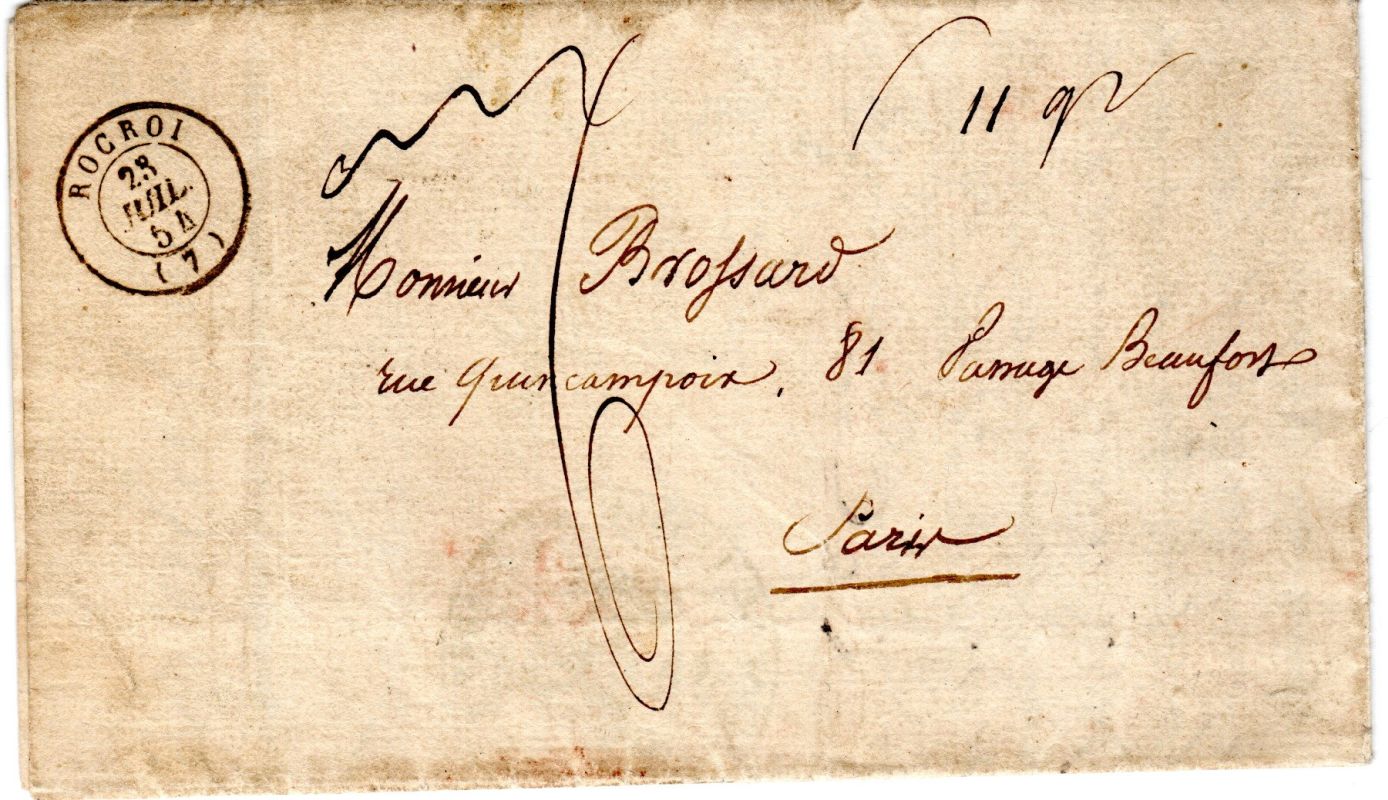 ROCROI
28
JUIL.
54
(7)
11 gr
Monsieur Brossard
rue Quincampoix, 81 Passage Beaufort
Paris